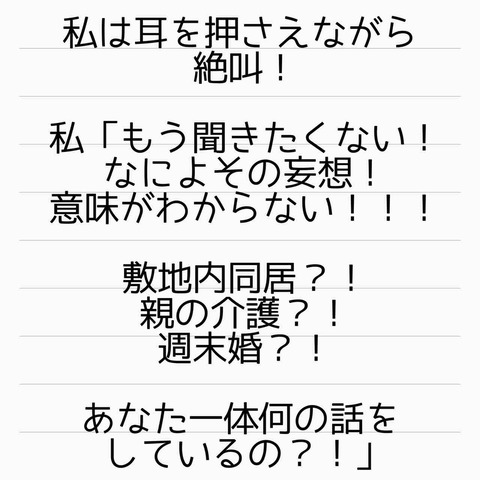 私は耳を押さえながら
絶叫！
私「もう聞きたくない！
なによその妄想！
意味がわからない！！！
敷地内同居？！
親の介護？！
週末婚？！
あなた一体何の話を
しているの？！」